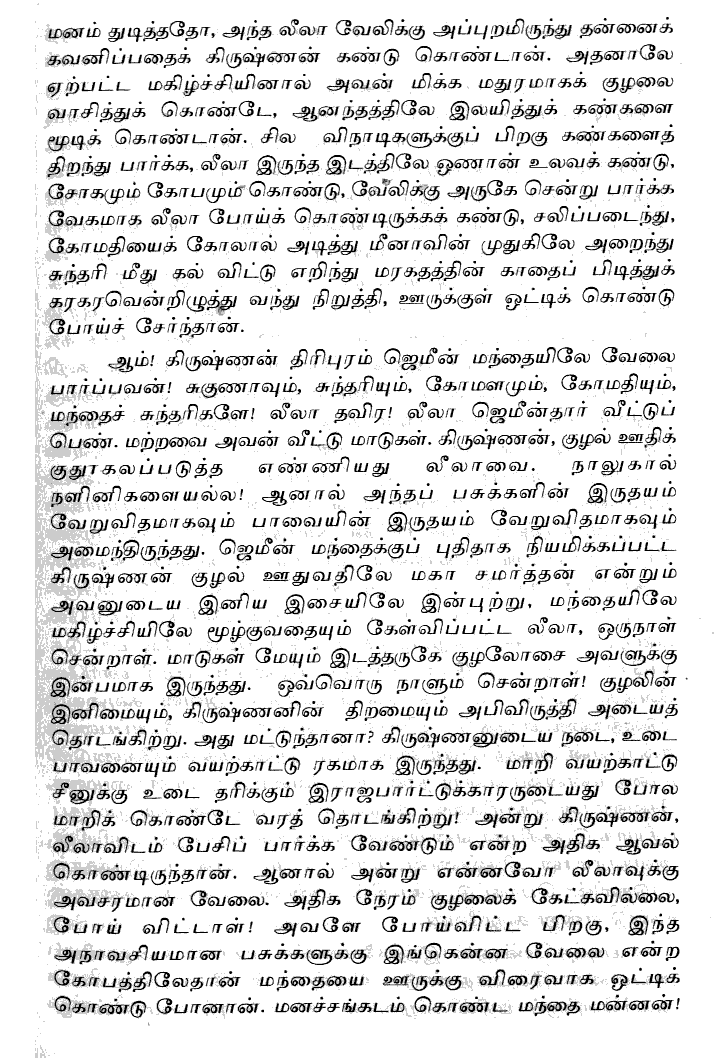 மனம் துடித்ததோ, அந்த லீலா வேலிக்கு அப்புறமிருந்து தன்னைக்
கவனிப்பதைக் கிருஷ்ணன் கண்டு கொண்டான். அதனாலே
ஏற்பட்ட மகிழ்ச்சியினால் அவன் மிக்க மதுரமாகக் குழலை
வாசித்துக் கொண்டே, ஆனந்தத்திலே இலயித்துக் கண்களை
மூடிக் கொண்டான். சில விநாடிகளுக்குப் பிறகு கண்களைத்
திறந்து பார்க்க, லீலா இருந்த இடத்திலே ஓணான் உலவக் கண்டு,
சோகமும் கோபமும் கொண்டு, வேலிக்கு அருகே சென்று பார்க்க
வேகமாக லீலா போய்க் கொண்டிருக்கக் கண்டு, சலிப்படைந்து,
கோமதியைக் கோலால் அடித்து மீனாவின் முதுகிலே அறைந்து
சுந்தரி மீது கல் விட்டு எறிந்து மரகதத்தின் காதைப் பிடித்துக்
கரகரவென்றிழுத்து வந்து நிறுத்தி, ஊருக்குள் ஒட்டிக் கொண்டு
போய்ச் சேர்ந்தான்.
ஆம்! கிருஷ்ணன் திரிபுரம் ஜெமீன் மந்தையிலே வேலை
பார்ப்பவன்! சுகுணாவும், சுந்தரியும், கோமளமும், கோமதியும்,
மந்தைச் சுந்தரிகளே! லீலா தவிர! லீலா ஜெமீன்தார் வீட்டுப்
பெண். மற்றவை அவன் வீட்டு மாடுகள். கிருஷ்ணன், குழல் ஊதிக்
குதூகலப்படுத்த எண்ணியது லீலாவை. நாலுகால்
நளினிகளையல்ல! ஆனால் அந்தப் பசுக்களின் இருதயம்
வேறுவிதமாகவும் பாவையின் இருதயம் வேறுவிதமாகவும்
அமைந்திருந்தது. ஜெமீன் மந்தைக்குப் புதிதாக நியமிக்கப்பட்ட
கிருஷ்ணன் குழல் ஊதுவதிலே மகா சமர்த்தன் என்றும்
அவனுடைய இனிய இசையிலே இன்புற்று, மந்தையிலே
மகிழ்ச்சியிலே மூழ்குவதையும் கேள்விப்பட்ட லீலா, ஒருநாள்
சென்றாள். மாடுகள் மேயும் இடத்தருகே குழலோசை அவளுக்கு
இன்பமாக இருந்தது. ஒவ்வொரு நாளும் சென்றாள்! குழலின்
இனிமையும், கிருஷ்ணனின் திறமையும் அபிவிருத்தி அடையத்
தொடங்கிற்று. அது மட்டுந்தானா? கிருஷ்ணனுடைய நடை, உடை
பாவனையும் வயற்காட்டு ரகமாக இருந்தது. மாறி வயற்காட்டு
சீனுக்கு உடை தரிக்கும் இராஜபார்ட்டுக்காரருடையது போல
மாறிக் கொண்டே வரத் தொடங்கிற்று! அன்று கிருஷ்ணன்,
லீலாவிடம் பேசிப் பார்க்க வேண்டும் என்ற அதிக ஆவல்
கொண்டிருந்தான். ஆனால் அன்று என்னவோ லீலாவுக்கு
அவசரமான் வேலை. அதிக நேரம் குழலைக் கேட்கவில்லை,
போய் விட்டாள்! அவளே போய்விட்ட பிறகு, இந்த
அநாவசியமான பசுக்களுக்கு இங்கென்ன வேலை என்ற
கோபத்திலேதான் மந்தையை ஊருக்கு விரைவாக ஒட்டிக்
கொண்டு போனான். மனச்சங்கடம் கொண்ட மந்தை மன்னன்!